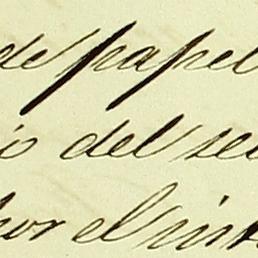 de papel
io del se
por el in